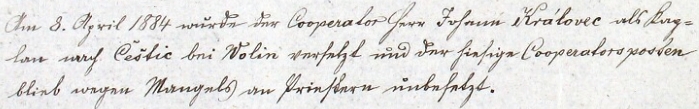 Am 8. April 1884 wurde der Cooperator Herr Johann Královec als Kap=
lan nach Čestic bei Wolin versetzt und der hiesige Cooperatorsposten
blieb wegen Mangels an Priestern unbesetzt.